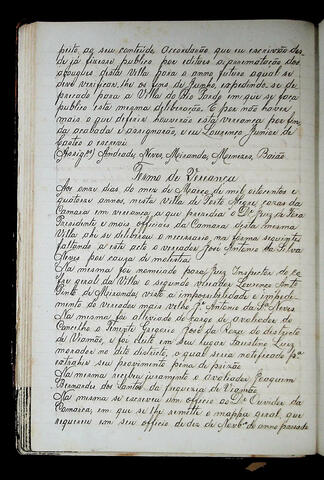 feito ao seu conteúdo. Acordarão que eu escrivão des-
de já fizesse publico por editaes a arrematação dos
açougues desta Villa para o anno futuro a qual se
deve verificar the os fins de Junho, expedindo-se de-
precada para a Villa do Rio Pardo em que se faça
publico esta mesma deliberação. E por não haver
mais o que deferir houverão esta vereança por fin-
da acabada e assignarão, e eu Lourenço Junior de
Castro o escrevi
(Assigos) Andrade, Neves, Miranda, Menezes, Baião
Termo de Vereança
Aos onze dias do mez de Março de mil oitocentos e
quatorze annos, nesta villa de Porto Alegre, cazas da
Camara em vereança a que presidia o Dr. Juiz de Fora
Presidente e mais officiaes da Camara desta mesma
Villa ahi se deliberou o necessario na forma seguinte
faltando a este acto o vereador José Antonio da Silva
Neves por causa de molestia.
Na mesma foi nomeado para Juiz Inspector do co-
fre geral da Villa o segundo vereador Lourenço Anto
Pinto de Miranda, visto a impossibilidade e impedi-
mento do vereador mais velho Je. Antonio da Sa. Neves
Na mesma foi alliviado do cargo de avaliador do
Concelho o Vicente Gregorio José da Roza do districto
de Viamão, e foi eleito em seu lugar Faustino Luiz
morador no dito districto, o qual seria notificado pa
extrahir seu provimento pena de prizão.
Na mesma recebeu juramento o avaliador Joaquim
Bernardes dos Santos da freguezia de Viamão
Na mesma se escreveu um officio ao Dr. Ouvidor da
Comarca, em que se lhe remette o mappa geral, que
requereu em seu officio de dez de Novbo. do anno passado